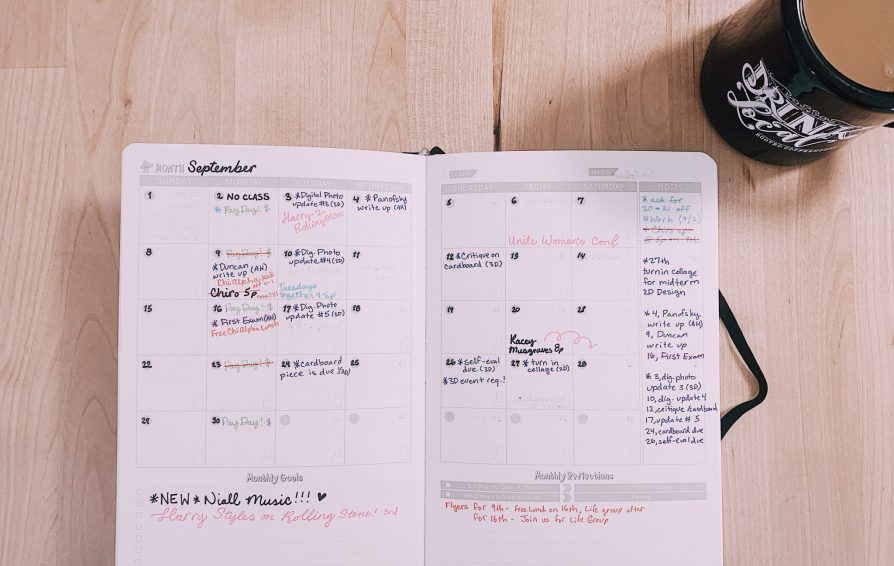 MONTH September
SUNDAY MONDAY TUESDAY WEDNESDAY
THURSDAY FRIDAY SATURDAY NOTES
1
2 NO CLASS
* Pay Day! $
3 *Digital Photo
update #3 (3D)
Harry-2
Rolling Stone
4 *Panofsky
write up (AH)
5
6
Unite Women's Conf.
7
8
9 Pay Day! $
*Duncan
write up (AH)
Chi Alpha
Chiro 5p
10 *Dig. Photo
update #4 (3D)
Tuesdays
together 4-6p
11
12 *Critique on
cardboard (3D)
13
14
15
16 Pay Day! $
*First Exam (AH)
Free Chi Alpha Lunch
17 *Dig. Photo
update #5 (3D)
18
19
20
Kacey
Musgraves 8p
21
22
23 Pay Day! $
24 *cardboard
piece is due (3D)
25
26 *self-eval
due. (3D)
*3D event req.!
27 *turn in
collage (2D)
28
29
30 Pay Day! $
*ask for
20+21 off
@Work (9/2)
* Chiro apt
*27th
turn in collage
for midterm
2D Design
*4, Panofsky
write up (AH)
9, Duncan
write up
16, First Exam
*3, dig. photo
update 3 (3D)
10, dig. update 4
12, critique /cardboard
17, update #5
24, cardboard due
26, self-eval due
Monthly Goals
*NEW* Niall Music!!! ♥
Harry Styles on Rolling Stone! 3rd
Monthly Reflections
Flyers for 9th - Free lunch on 16th, Life group after
for 16th - Join us for Life Group
DRINK
Local